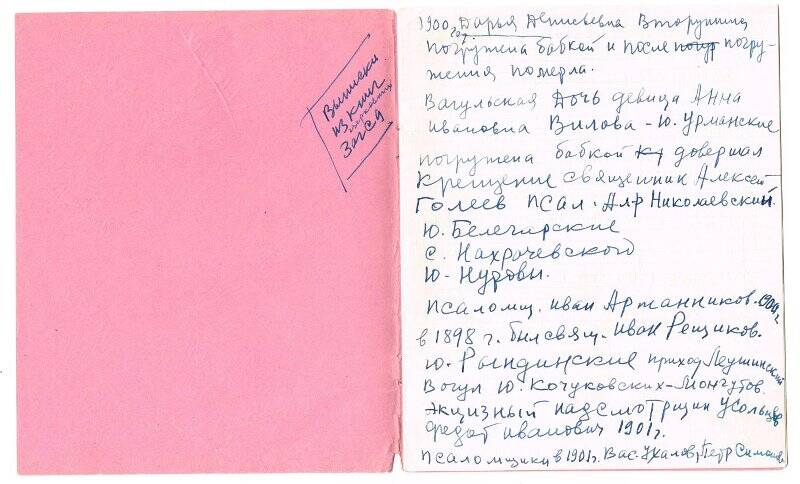 Выписки
из книг
Загса
1900 год Дарья Денисьевна Вторушина
погружена бабкой и после погру-
жения померла.
Вагульская дочь девица Анна
Ивановна Вилова - Ю. Урманские
погружена бабкой довершал
крещение священник Алексей
Голеев псал. Алр Николаевский
Ю. Белегарские
с. Нахрачевского
Ю-
псаломщ. Иван Артанников. 1900 г.
в 1898 г. был свящ. Иван Рещиков.
Ю. Рындинские приход Леушинский
Вогул Ю. Кочуковских - Монгутов.
Экцизный надсмотрщик Усольцев
Федот Иванович 1901г.
Псаломщики в 1901г. Вас. Ухалов, Петр